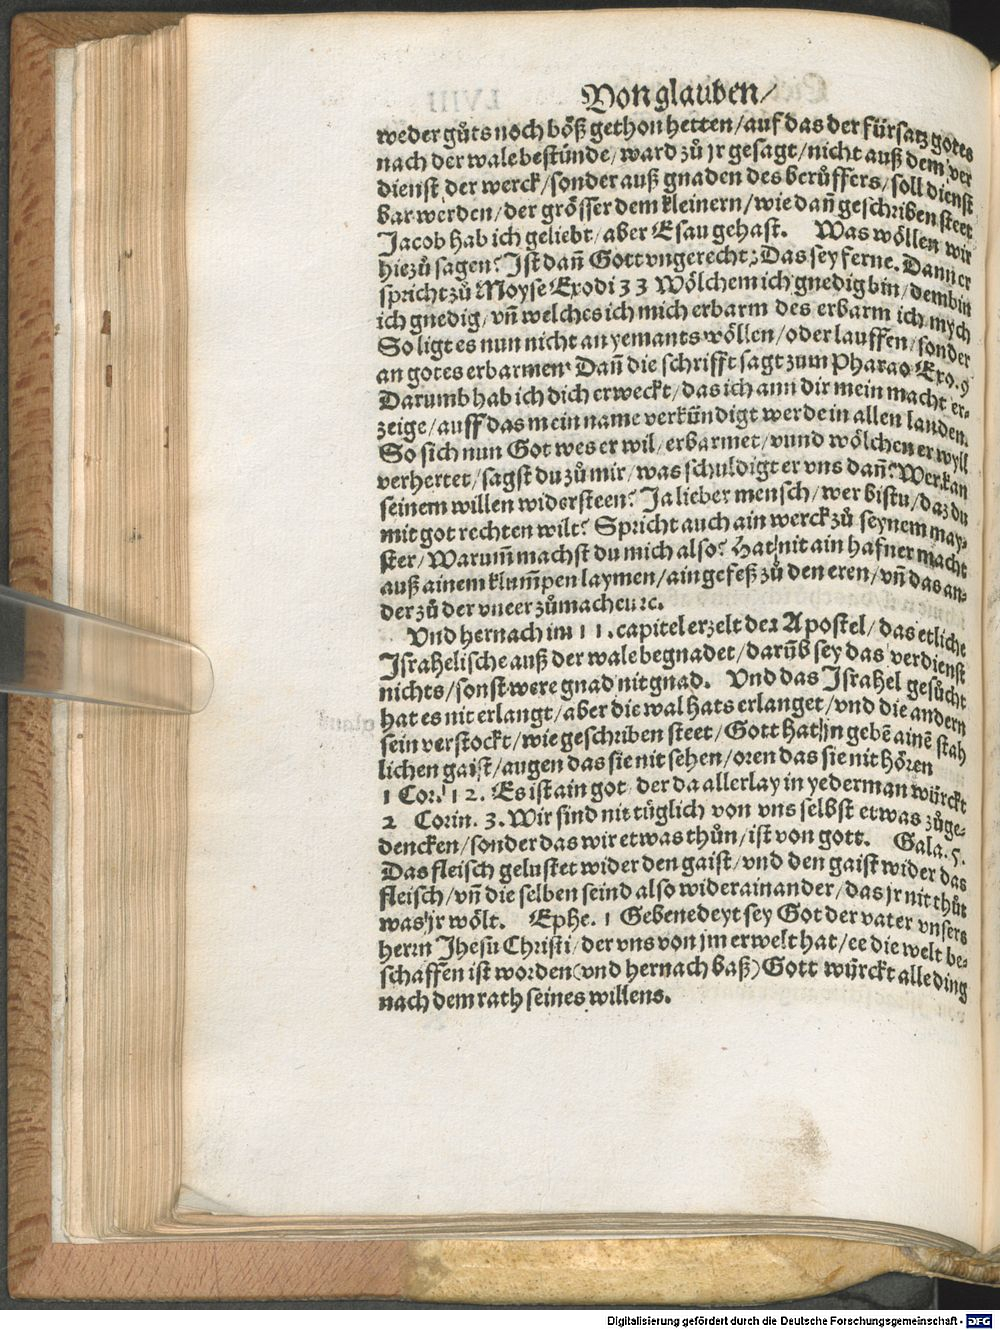 Von glauben/
weder gůts noch böß gethon hetten/auf das der fürsatz gotes
nach der wale bestünde/ward zů jr gesagt/nicht auß dem ver
dienst der werck/sonder auß gnaden des berůffers/soll dienst
bar werden/der grösser dem kleinern/wie dañ geschriben steet
Jacob hab ich geliebt/aber Esau gehast. Was wöllen wir
hiezů sagen? Ist dañ Gott vngerecht? Das sey ferne. Dann er
spricht zů Moyse Exodi 33 Wölchem ich gnedig bin/dem bin
ich gnedig/vñ welches ich mich erbarm des erbarm ich mych
So ligt es nun nicht an yemants wöllen/oder lauffen/sonder
an gotes erbarmen. Dañ die schrifft sagt zum Pharao Exo. 9
Darumb hab ich dich erweckt/das ich ann dir mein macht er-
zeige/auff das mein name verkündigt werde in allen landen.
So sich nun Got wes er wil/erbarmet/vnnd wölchen er wyll
verhertet/sagst du zů mir/was schuldigt er vns dañ? Wer kan
seinem willen widersteen? Ja lieber mensch/wer bistu/daz du
mit got rechten wilt? Spricht auch ain werck zů seynem may-
ster/Warum̃ machst du mich also? Hat nit ain hafner macht
auß ainem klum̃pen laymen/ain gefeß zů den eren/vñ das an-
der zů der vneer zůmachen ꝛc.
Vnd hernach im 11. capitel erzelt der Apostel/das etliche
Israhelische auß der wale begnadet/darũb sey das verdienst
nichts/sonst were gnad nit gnad. Vnd das Israhel gesůcht
hat es nit erlangt/aber die wal hats erlanget/vnd die andern
sein verstockt/wie geschriben steet/Gott hat jn gebē ainē stah
lichen gaist/augen das sie nit sehen/oren das sie nit hören
1 Cor. 12. Es ist ain got/der da allerlay in yederman würckt
2 Corin. 3. Wir sind nit tüglich von vns selbst etwas zůge-
dencken/sonder das wir etwas thůn/ist von gott. Gala. 5.
Das fleisch gelustet wider den gaist/vnd den gaist wider das
fleisch/vñ die selben seind also widerainander/das jr nit thůt
was jr wölt. Ephe. 1 Gebenedeyt sey Got der vater vnsers
herrn Jhesu Christi/der vns von jm erwelt hat/ee die welt be-
schaffen ist worden (vnd hernach baß) Gott würckt alle ding
nach dem rath seines willens.
Digitalisierung gefördert durch die Deutsche Forschungsgemeinschaft - DFG